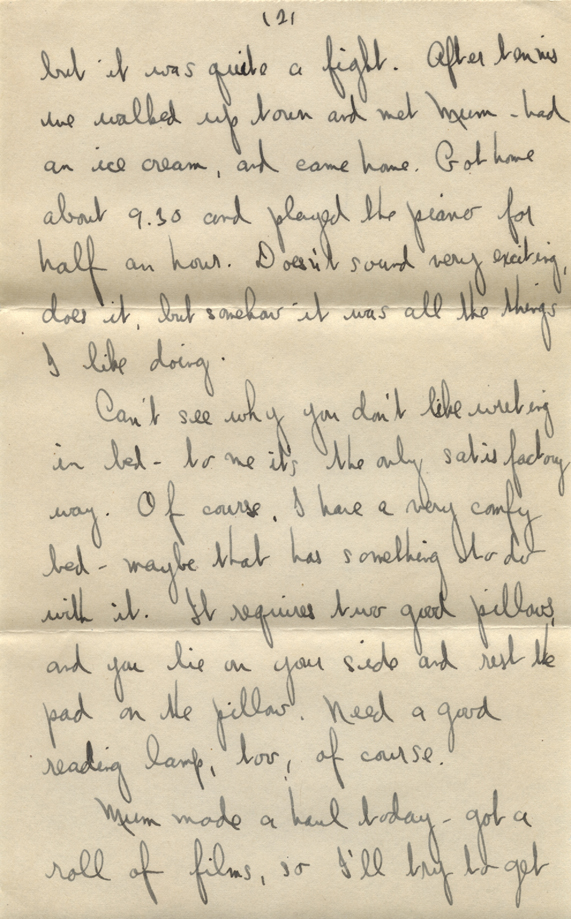 (2)
but it was quite a fight. After tennis
we walked up town and met Mum - had
an ice cream, and came home. Got home
about 9.30 and played the piano for
half an hour. Doesn't sound very exciting,
does it, but somehow it was all the things
I like doing.
Can't see why you don't like writing
in bed - to me it's the only satisfactory
way. Of course, I have a very comfy
bed - maybe that has something to do
with it. It requires two good pillows,
and you lie on your side and rest the
pad on the pillow. Need a good
reading lamp, too, of course.
Mum made a haul today - got a
roll of films, so I'll try to get